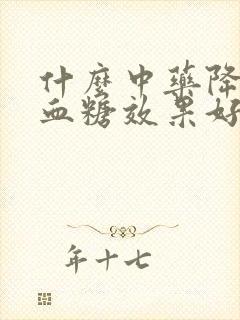 什麼中藥降
血糖效果好
年十七